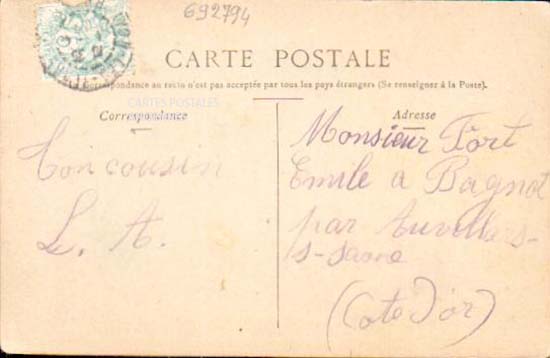 692794
CARTE POSTALE
La Correspondance au recto n'est pas acceptée par tous les pays étrangers (Se renseigner à la Poste).
CARTES POSTALES
Correspondance
Adresse
Ton cousin
L. A.
Monsieur Fort
Emile a Bagnot
par Auvillars-
s-Saone
(Cote d'or)